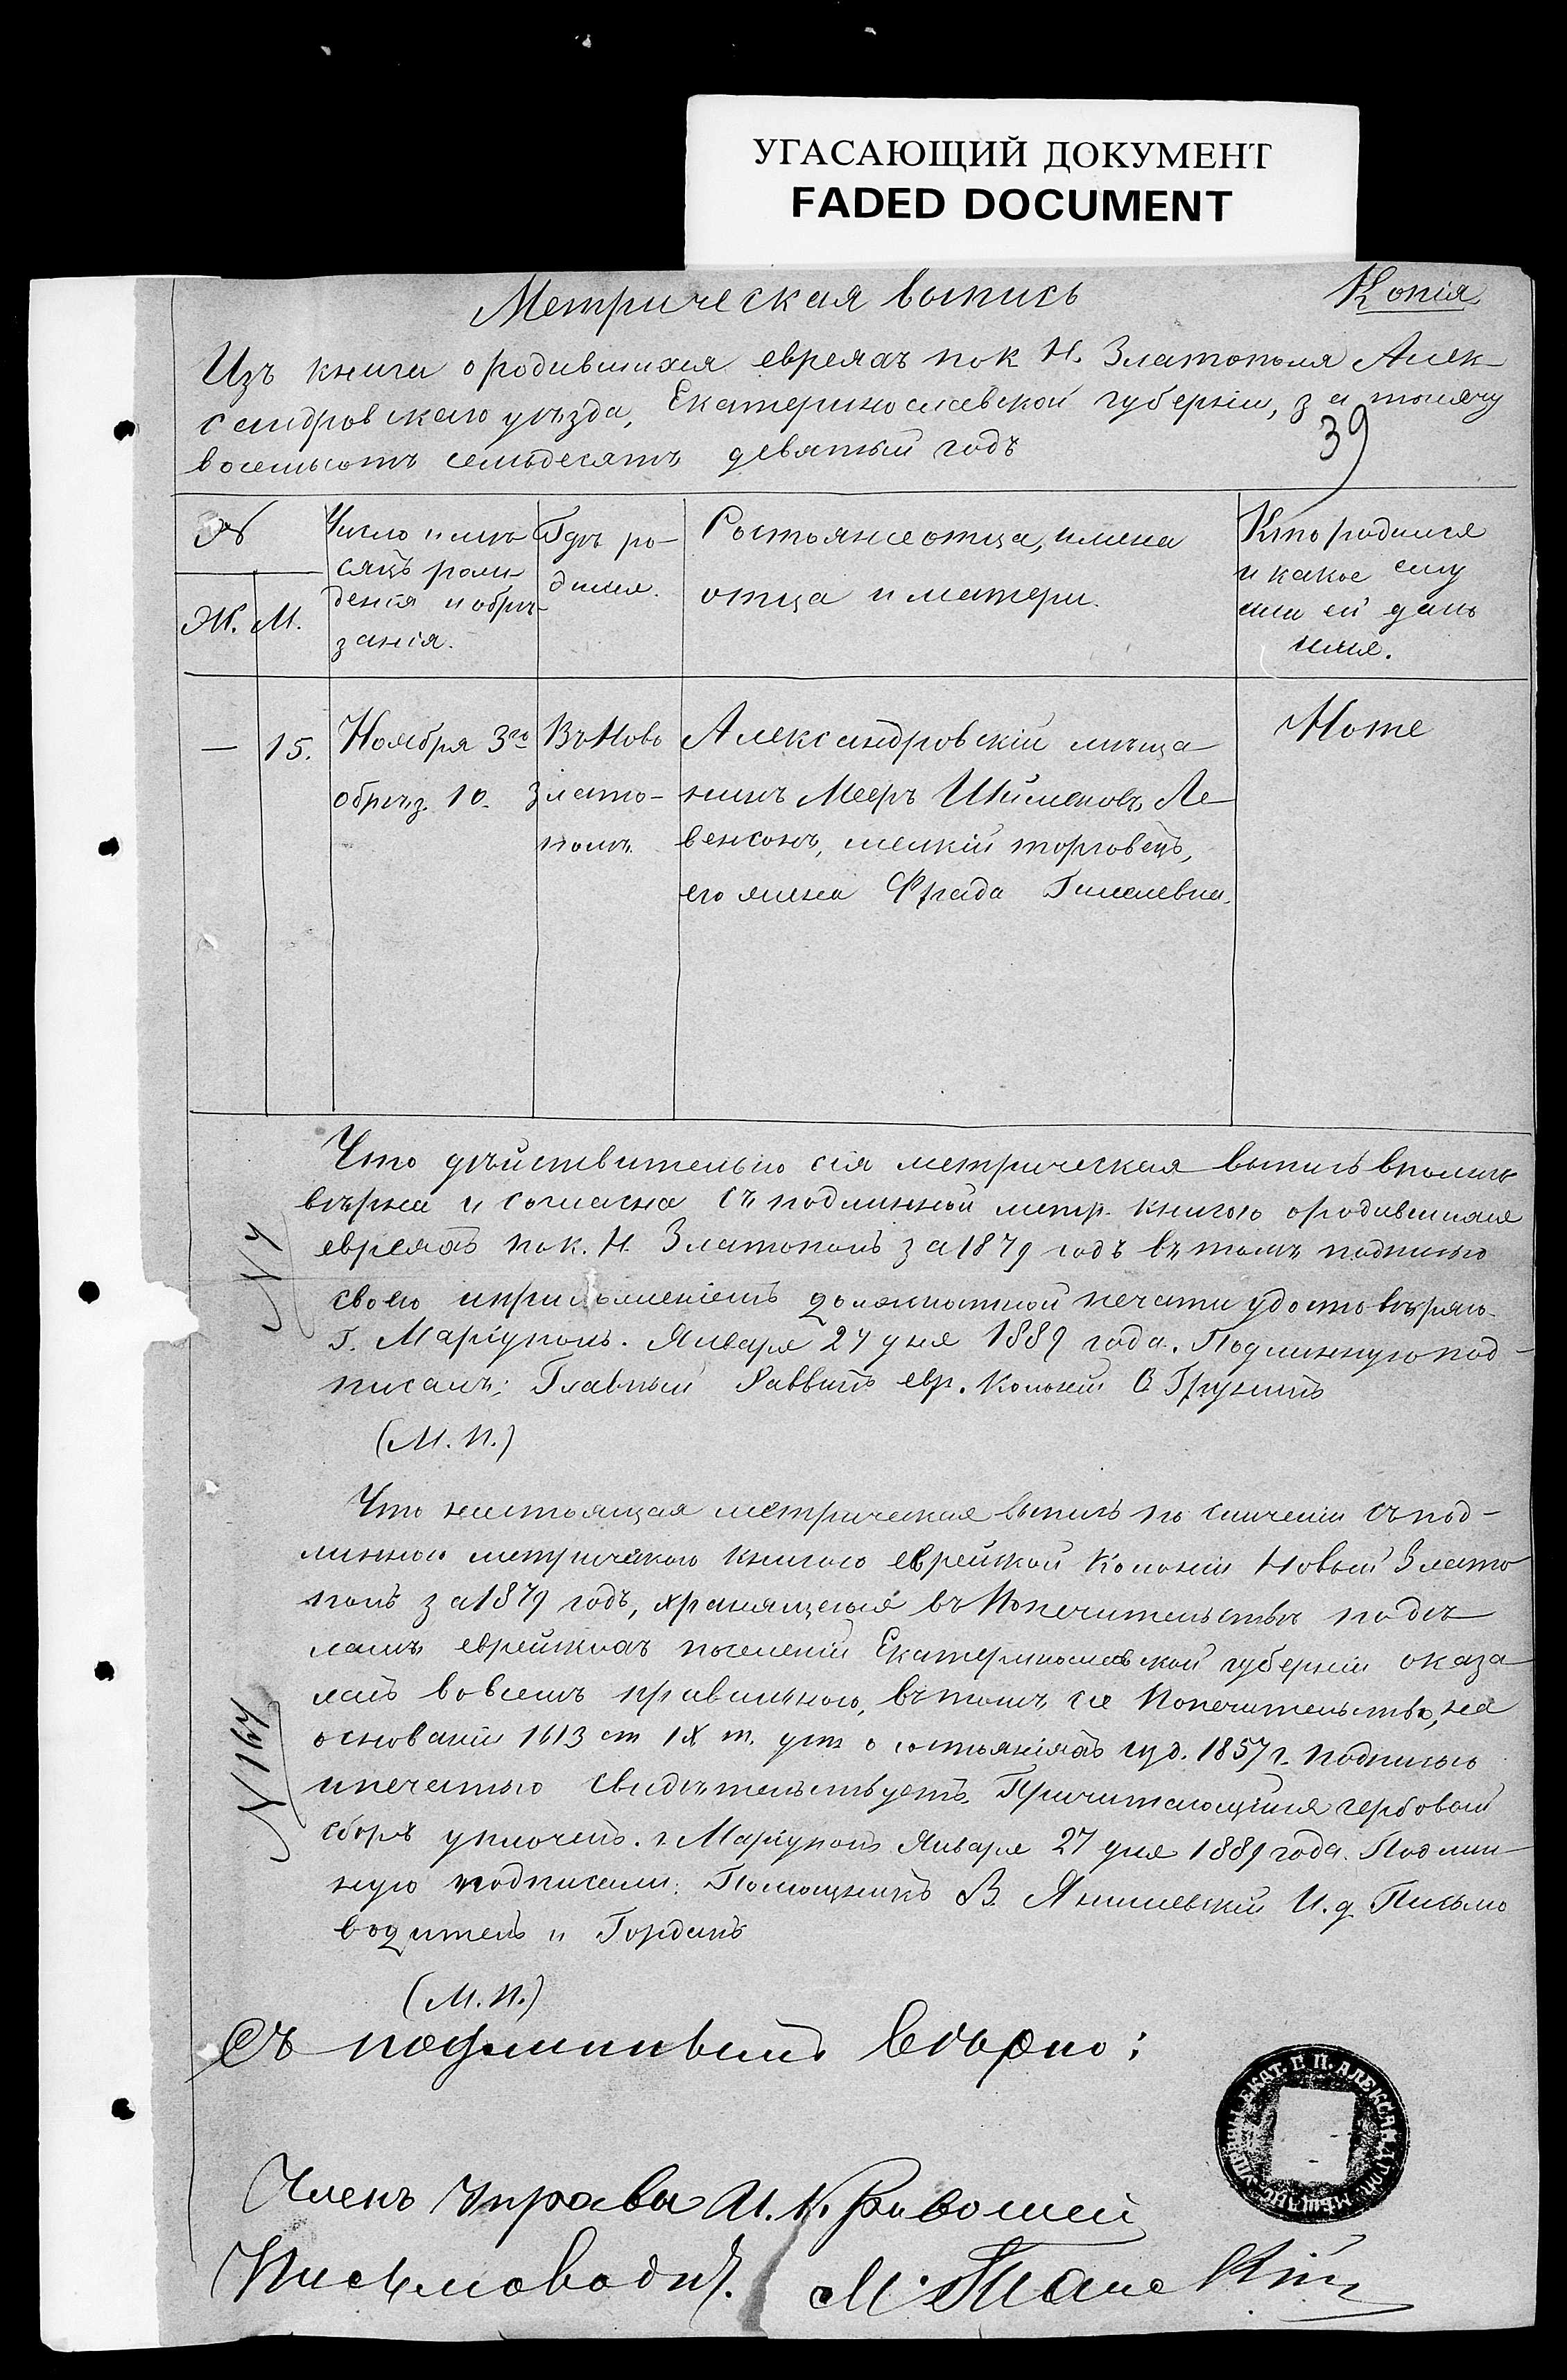 УГАСАЮЩИЙ ДОКУМЕНТ
FADED DOCUMENT
Метрическая выпись
Копія
Изъ книги о родившихся евреяхъ по к Н. Златополя Алек-
сандровскаго уѣзда, Екатеринославской губерніи, за тысячу
восемьсотъ семьдесятъ девятый годъ
39
№
Ж. М.
Число и мѣ-
сяцъ рож-
денія и обрѣ-
занія.
Гдѣ ро-
дился.
Состояніе отца, имена
отца и матери.
Кто родился
и какое ему
или ей дано
имя.
— 15.
Ноября 3го
обрѣз. 10.
Въ Ново
злато-
полѣ
Александровскій мѣща-
нинъ Мееръ Шймоновъ Ле-
венсонъ, мелкій торговецъ,
его жена Фрада
Ноте
Что дѣйствительно сія метрическая выпись вполнѣ
вѣрна и согласна съ подлинной метр. книгою о родившихся
евреяхъ по к. Н. Златополь за 1879 годъ въ томъ подписью
свою и приложеніемъ должностной печати удостовѣряю.
г. Маріуполь. Января 24 дня 1889 года. Подлинную под-
писалъ: Главный Раввинъ евр. Колоній
(М. П.)
Что настоящая метрическая выпись по сличеніи съ под-
линною метрическою книгою еврейской Колоніи Новый Злато
поль за 1879 годъ, хранящеюся въ Попечительствѣ по дѣ
ламъ еврейскихъ поселеній Екатеринославской губерніи оказа
лась во всемъ правильною, въ томъ сіе Попечительство, на
основаніи 1613 ст IX т. уст о состояніяхъ изд. 1857 г. подписью
и печатью свидѣтельствуетъ. Причитающійся гербовый
сборъ уплоченъ. г. Маріуполь Января 27 дня 1889 года. Подлин-
ную подписали: Помощникъ В. Янишевскій И. д. Письмо
водитель И Гординъ
(М. П.)
№ 4
№ 164
Съ подлиннымъ вѣрно:
Членъ Управы И. Кривошей
Письмоводит.